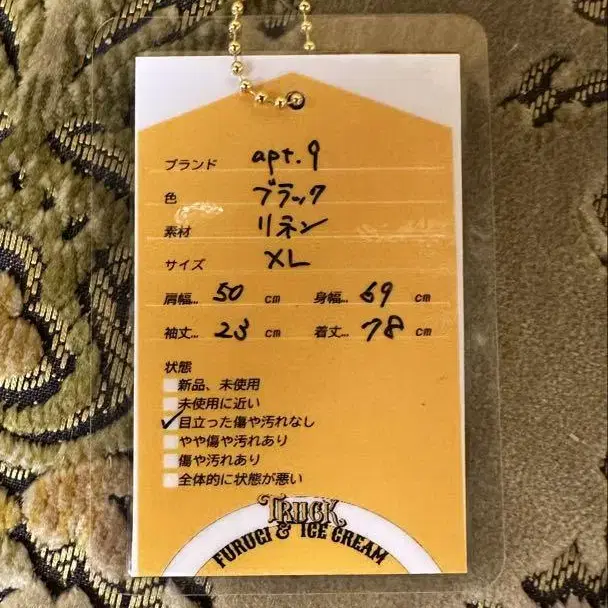 ブランド apt.9
色 ブラック
素材 リネン
サイズ XL
肩幅... 50 cm 身幅... 69 cm
袖丈... 23 cm 着丈... 78 cm
状態
新品、未使用
未使用に近い
✓目立った傷や汚れなし
やや傷や汚れあり
傷や汚れあり
全体的に状態が悪い
TRUCK
FURUGI & ICE CREAM